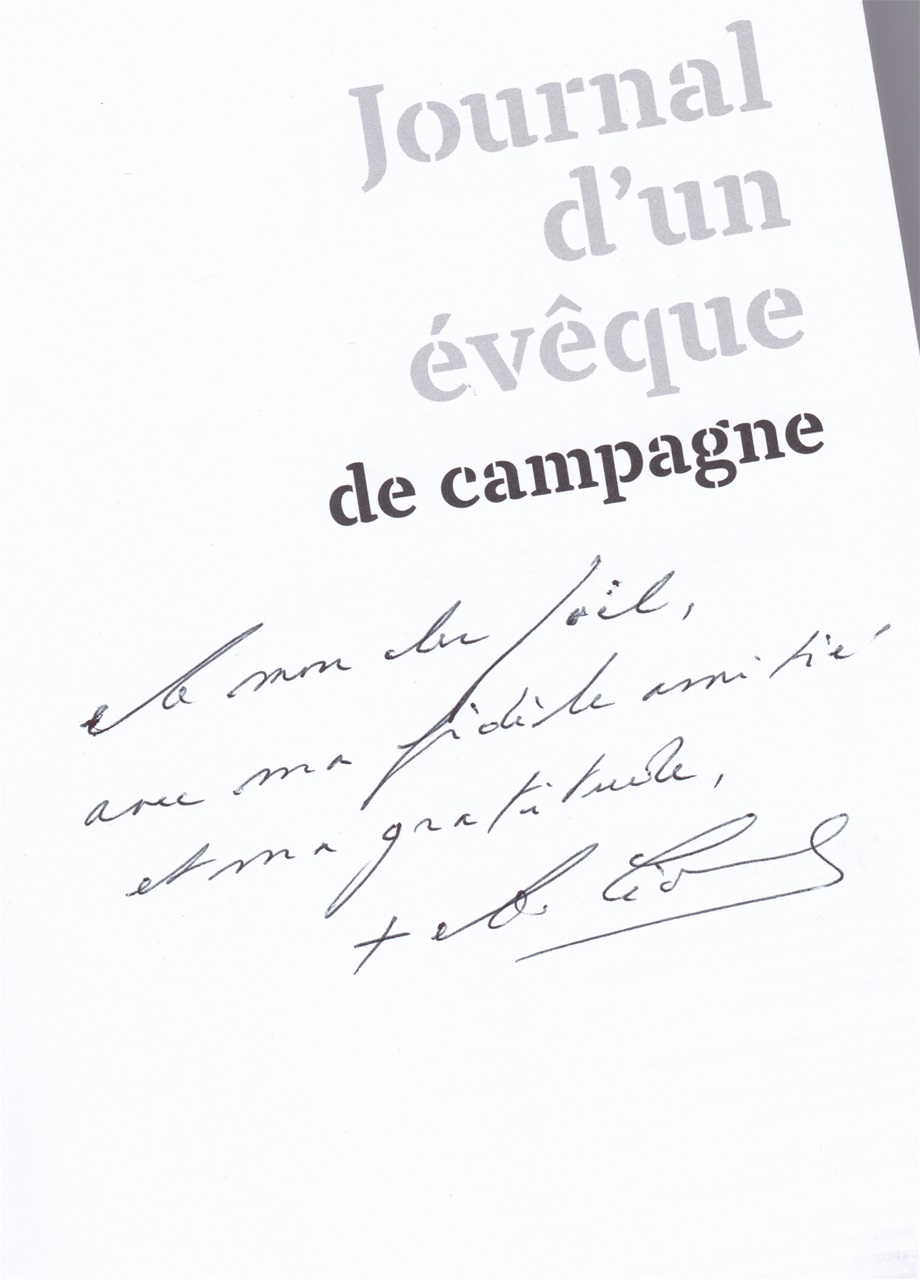 Journal
d'un
évêque
de campagne
A mon cher Joël,
avec ma fidèle amitié
et ma gratitude,
+ A.